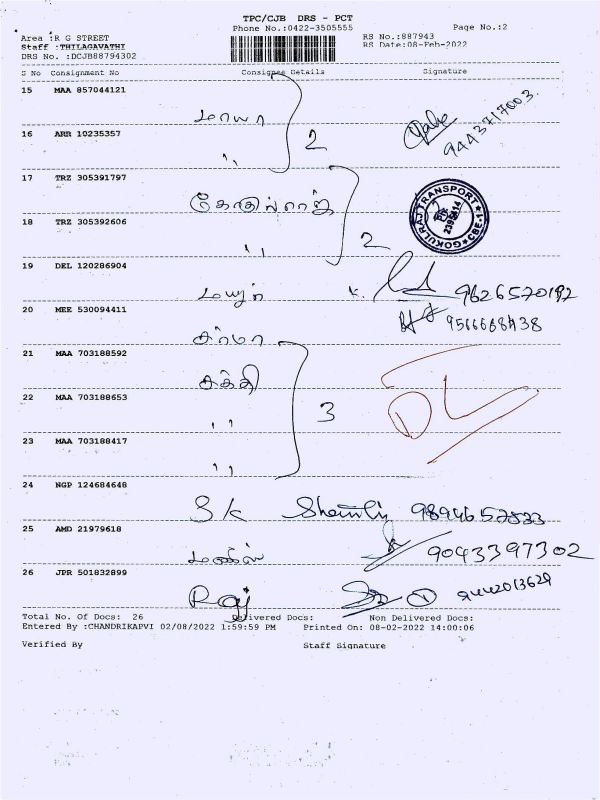 TPC/CJB DRS - PCT
Phone No.:0422-3505555 Page No.:2
Area :R G STREET RS No.:887943
Staff :THILAGAVATHI RS Date:08-Feb-2022
DRS No. :DCJB88794302
S No Consignment No Consignee Details Signature
15 MAA 857044121
மாயா 2 9443717003
16 ARR 10235357
"
17 TRZ 305391797
கோகுல்ராஜ் 2 GOKULRAJ TRANSPORT CBE-1
18 TRZ 305392606
"
19 DEL 120286904
மயூர் 9626570192
20 MEE 530094411
சர்மா
21 MAA 703188592
சக்தி 3 DL
22 MAA 703188653
"
23 MAA 703188417
"
24 NGP 124684648
S/c
25 AMD 21979618
9043397302
26 JPR 501832899
Raj 9442013629
Total No. Of Docs: 26 Delivered Docs: Non Delivered Docs:
Entered By :CHANDRIKAPVI 02/08/2022 1:59:59 PM Printed On: 08-02-2022 14:00:06
Verified By Staff Signature